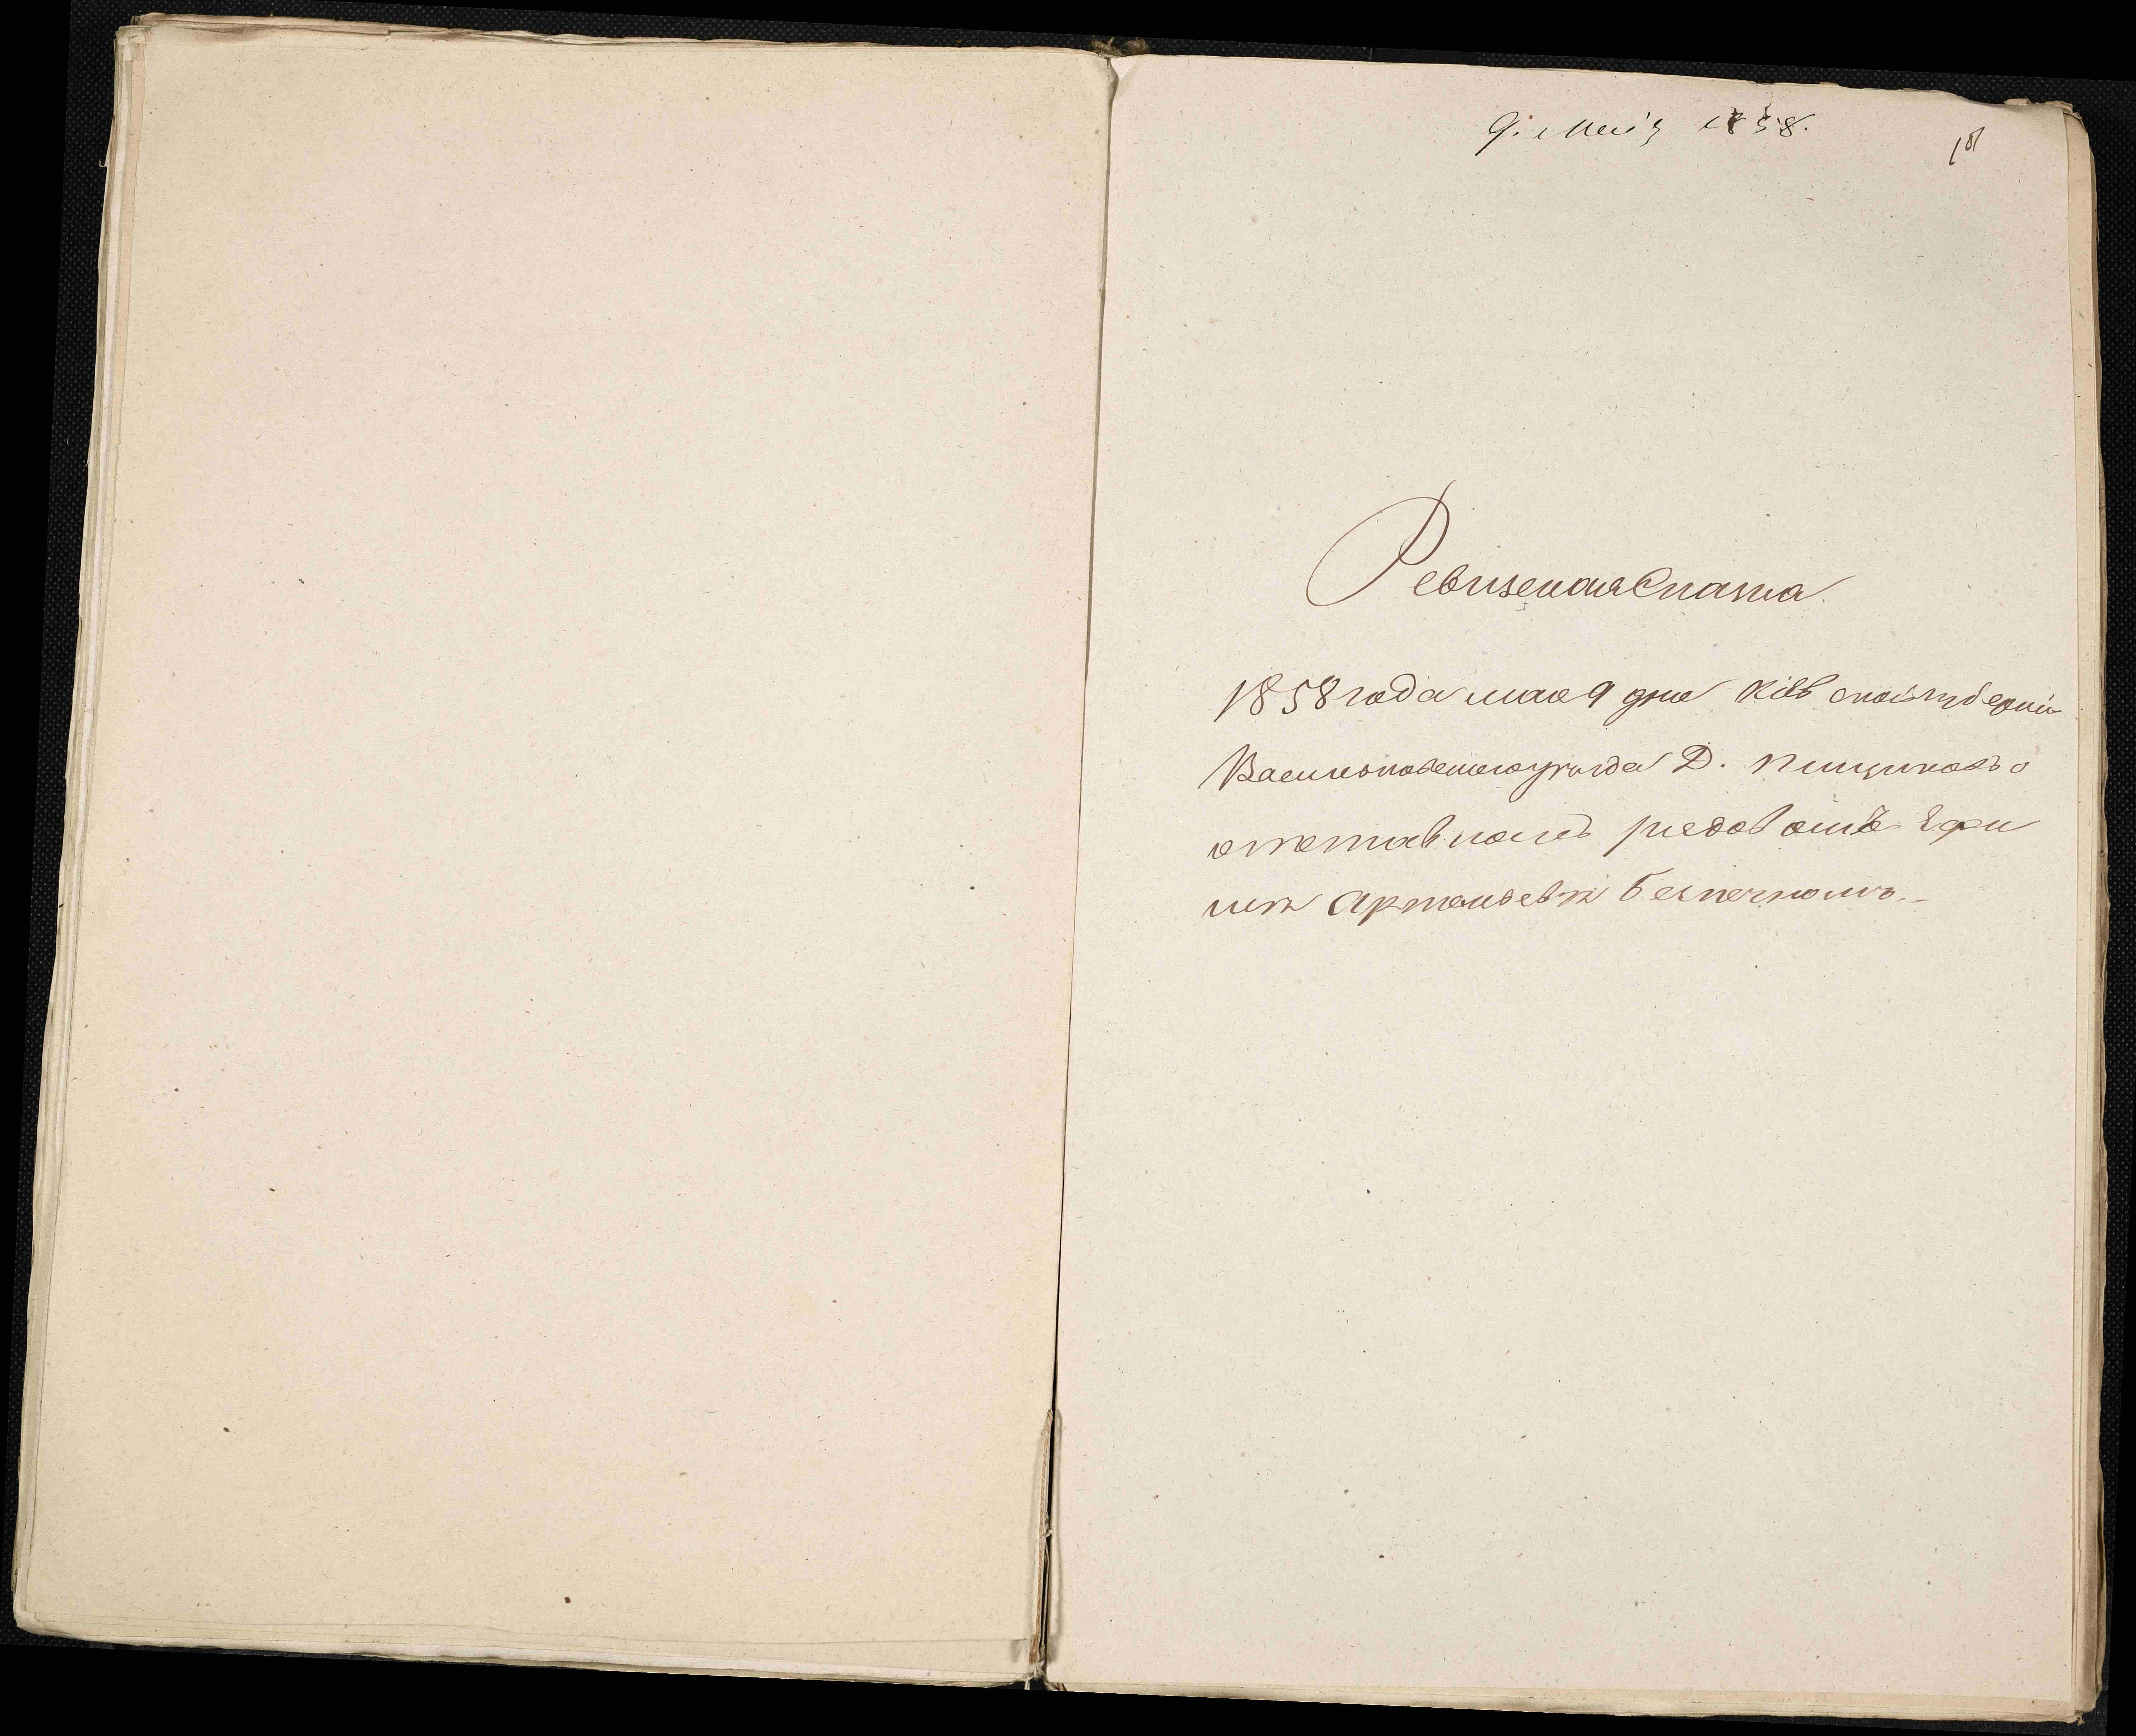 9. Мая 1858.
181
Ревизская Сказка.
1858 года мая 9 дня Кіевской губерніи
Васильковскаго уезда Д. Пищиковъ о
отставномъ редовомъ Ефи
ме Артемьеве Безпечномъ.